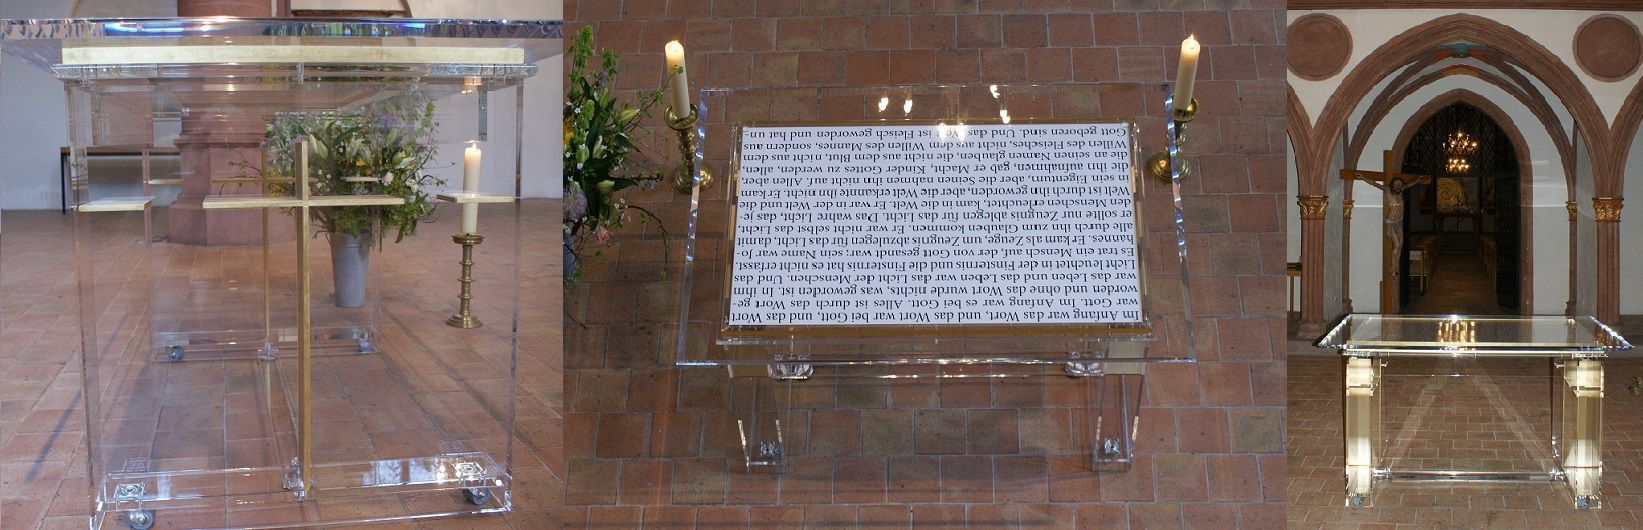 Im Anfang war das Wort, und das Wort war bei Gott, und das Wort
war Gott. Im Anfang war es bei Gott. Alles ist durch das Wort ge-
worden und ohne das Wort wurde nichts, was geworden ist. In ihm
war das Leben und das Leben war das Licht der Menschen. Und das
Licht leuchtet in der Finsternis und die Finsternis hat es nicht erfasst.
Es trat ein Mensch auf, der von Gott gesandt war; sein Name war Jo-
hannes. Er kam als Zeuge, um Zeugnis abzulegen für das Licht, damit
alle durch ihn zum Glauben kommen. Er war nicht selbst das Licht,
er sollte nur Zeugnis ablegen für das Licht. Das wahre Licht, das je-
den Menschen erleuchtet, kam in die Welt. Er war in der Welt und die
Welt ist durch ihn geworden, aber die Welt erkannte ihn nicht. Er kam
in sein Eigentum, aber die Seinen nahmen ihn nicht auf. Allen aber,
die ihn aufnahmen, gab er Macht, Kinder Gottes zu werden, allen,
die an seinen Namen glauben, die nicht aus dem Blut, nicht aus dem
Willen des Fleisches, nicht aus dem Willen des Mannes, sondern aus
Gott geboren sind. Und das Wort ist Fleisch geworden und hat un-